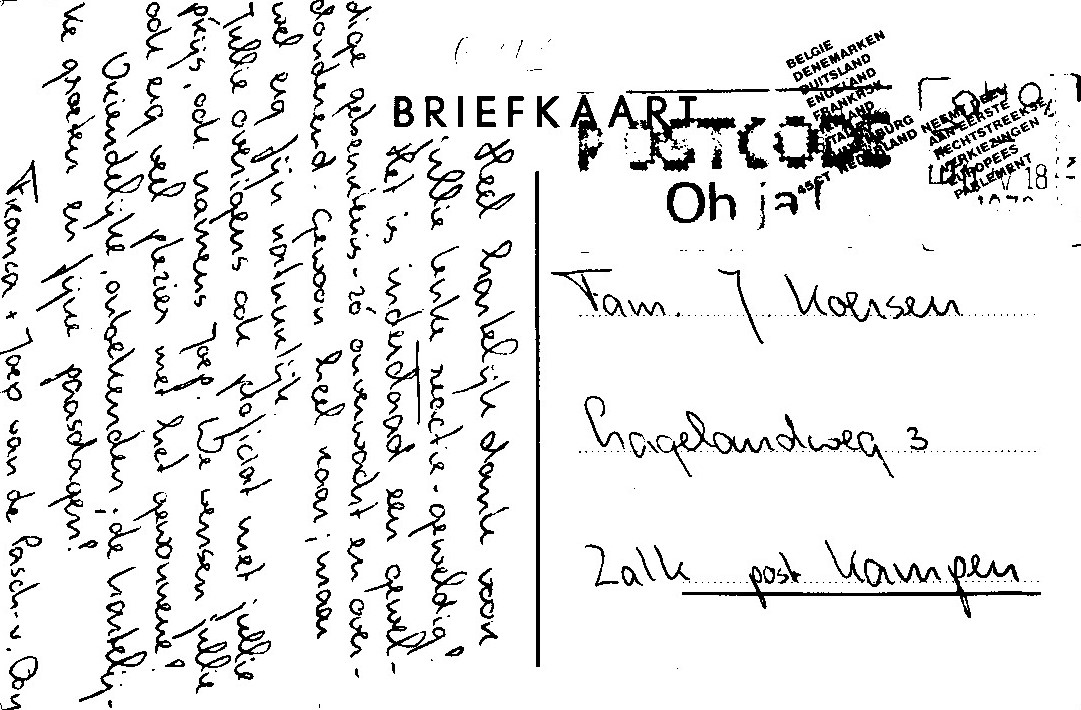 BRIEFKAART
POSTCODE
Oh ja!
BELGIE
DENEMARKEN
DUITSLAND
ENGELAND
FRANKRIJK
LUXEMBURG
NEDERLAND NEEMT DEEL
AAN EERSTE
RECHTSTREEKSE
VERKIEZINGEN
EUROPEES
PARLEMENT
18
Heel hartelijk dank voor
jullie leuke reactie - geweldig!
Het is inderdaad een gewel-
dige gebeurtenis - zó onverwacht en over-
donderend. Gewoon heel raar; maar
wel erg fijn natuurlijk.
Jullie overigens ook proficiat met jullie
prijs, ook namens Joep. We wensen jullie
ook erg veel plezier met het gewonnene!
Vriendelijke onbekenden; de hartelij-
ke groeten en fijne paasdagen!
Franca + Joep van de Pasch-v. Ooy
Fam. J. Koersen
Hagelandweg 3
Zalk post Kampen